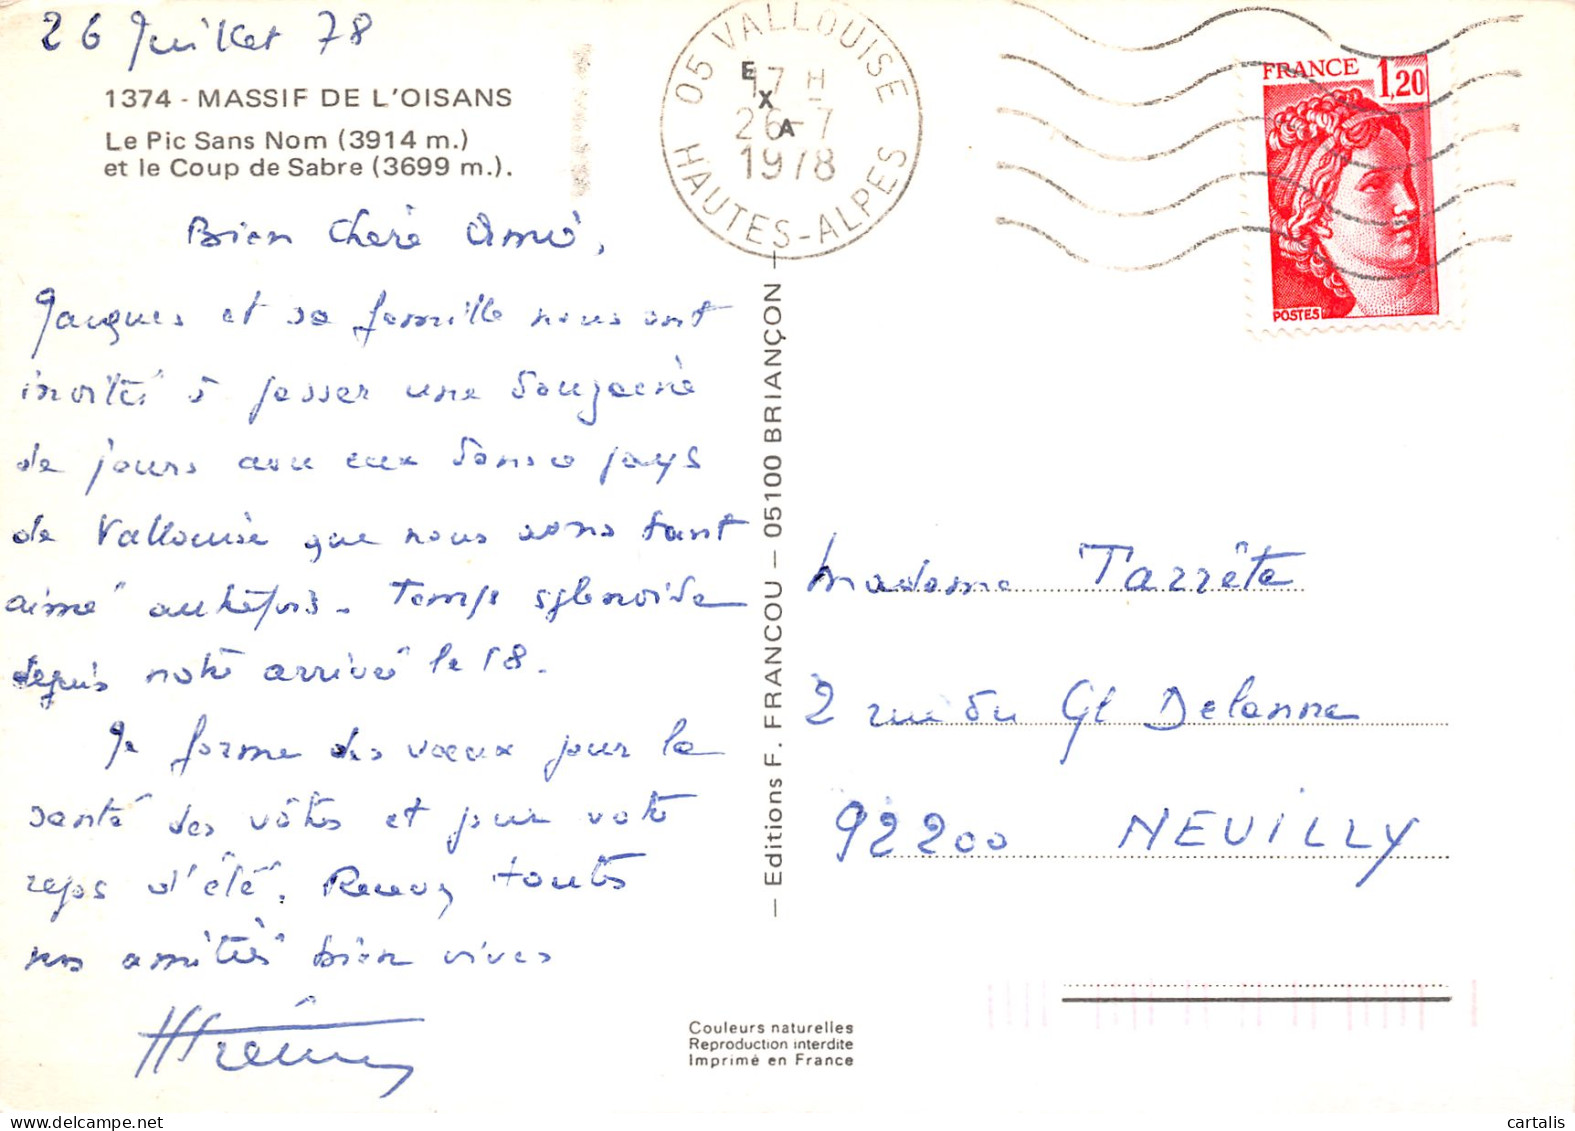 26 Juillet 78
1374 - MASSIF DE L'OISANS
Le Pic Sans Nom (3914 m.)
et le Coup de Sabre (3699 m.).
Bien Chère Amie,
Jacques et sa famille nous ont
invités à passer une douzaine
de jours avec eux dans ce pays
de Vallouise que nous avons tant
aimé autrefois. Temps splendide
depuis notre arrivée le 18.
Je forme des vœux pour la
santé des vôtres et pour votre
repos d'été. Recevez toutes
nos amitiés bien vives
05 VALLOUISE
17 H
26-7
1978
HAUTES-ALPES
EXA
FRANCE 1,20
POSTES
— Editions F. FRANCOU — 05100 BRIANÇON —
Madame Tarrête
2 rue du Gl Delanne
92200 NEUILLY
Couleurs naturelles
Reproduction interdite
Imprimé en France
cartalis